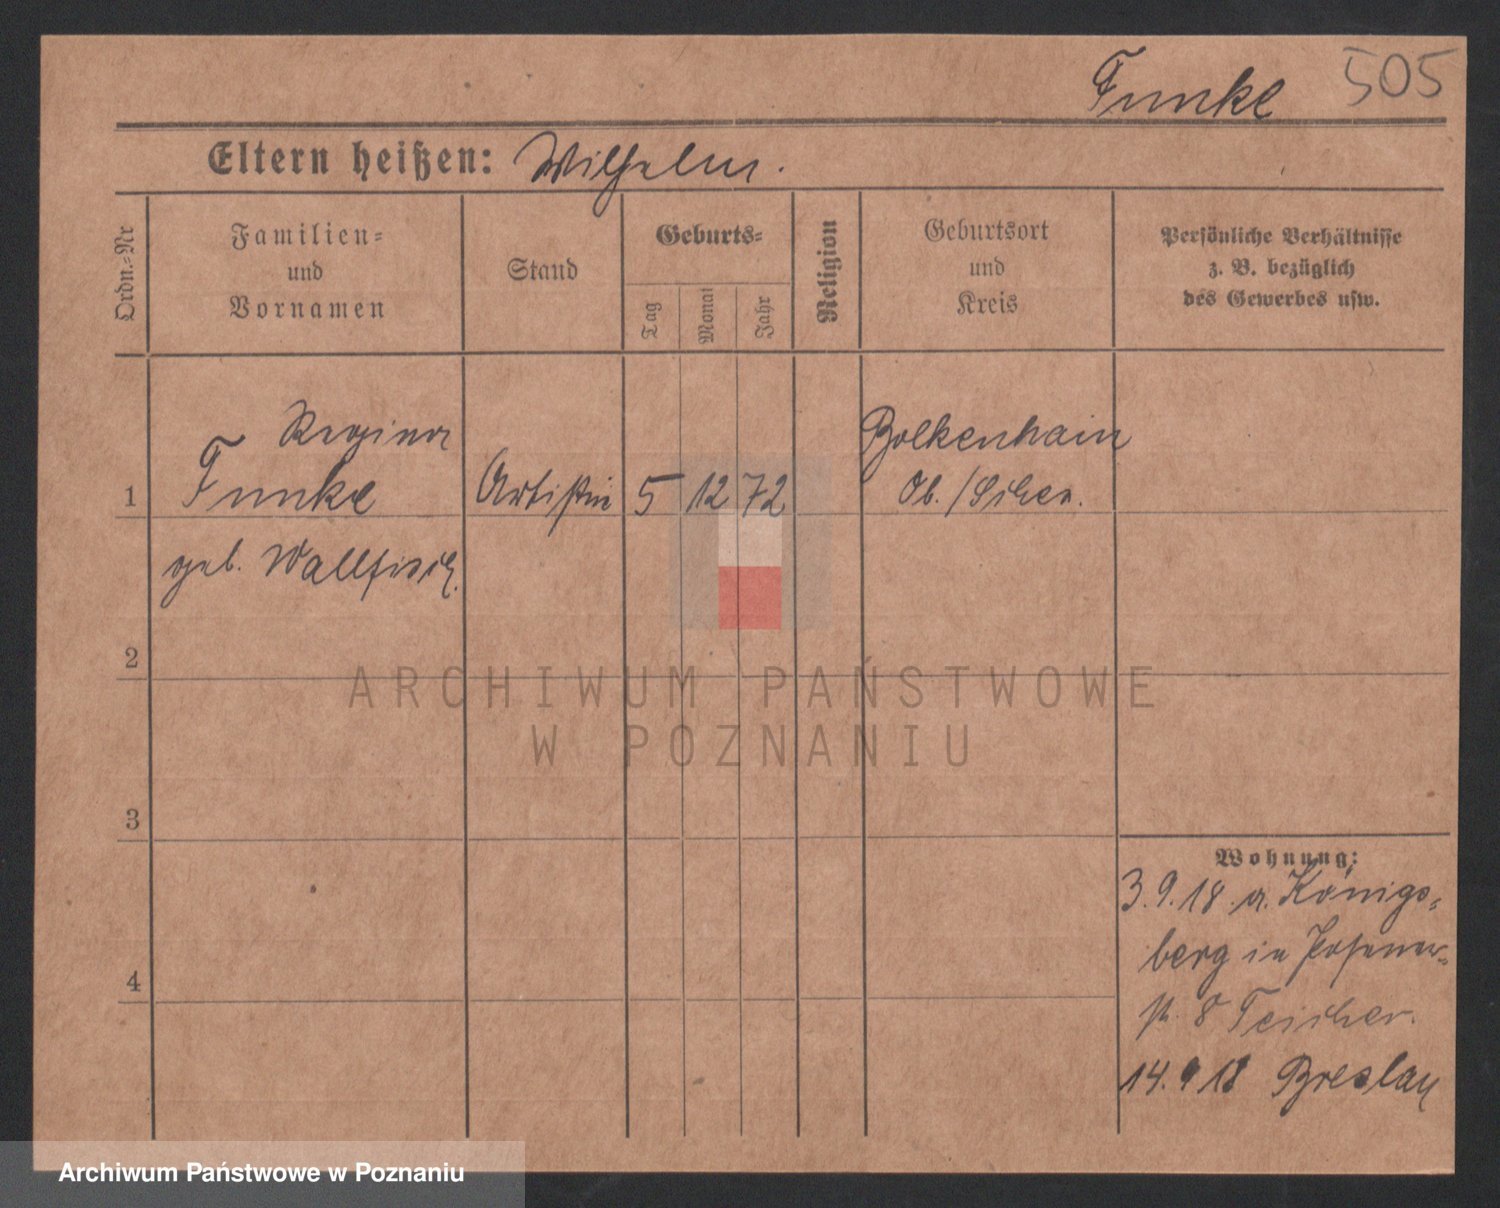 Funke 505
Eltern heißen: Wilhelm.
Ordn.=Nr
Familien=
und
Vornamen
Stand
Geburts=
Tag
Monat
Jahr
Religion
Geburtsort
und
Kreis
Persönliche Verhältnisse
z. B. bezüglich
des Gewerbes usw.
Regina
1 Funke Artistin 5 12 72
Bolkenhain
Ob./Schles.
geb. Wallfisch.
2
3
4
Wohnung:
3.9.18 a. Königs=
berg in Posener=
st. 8 Teicher.
14.9 18 Breslau
ARCHIWUM PAŃSTWOWE
W POZNANIU
Archiwum Państwowe w Poznaniu